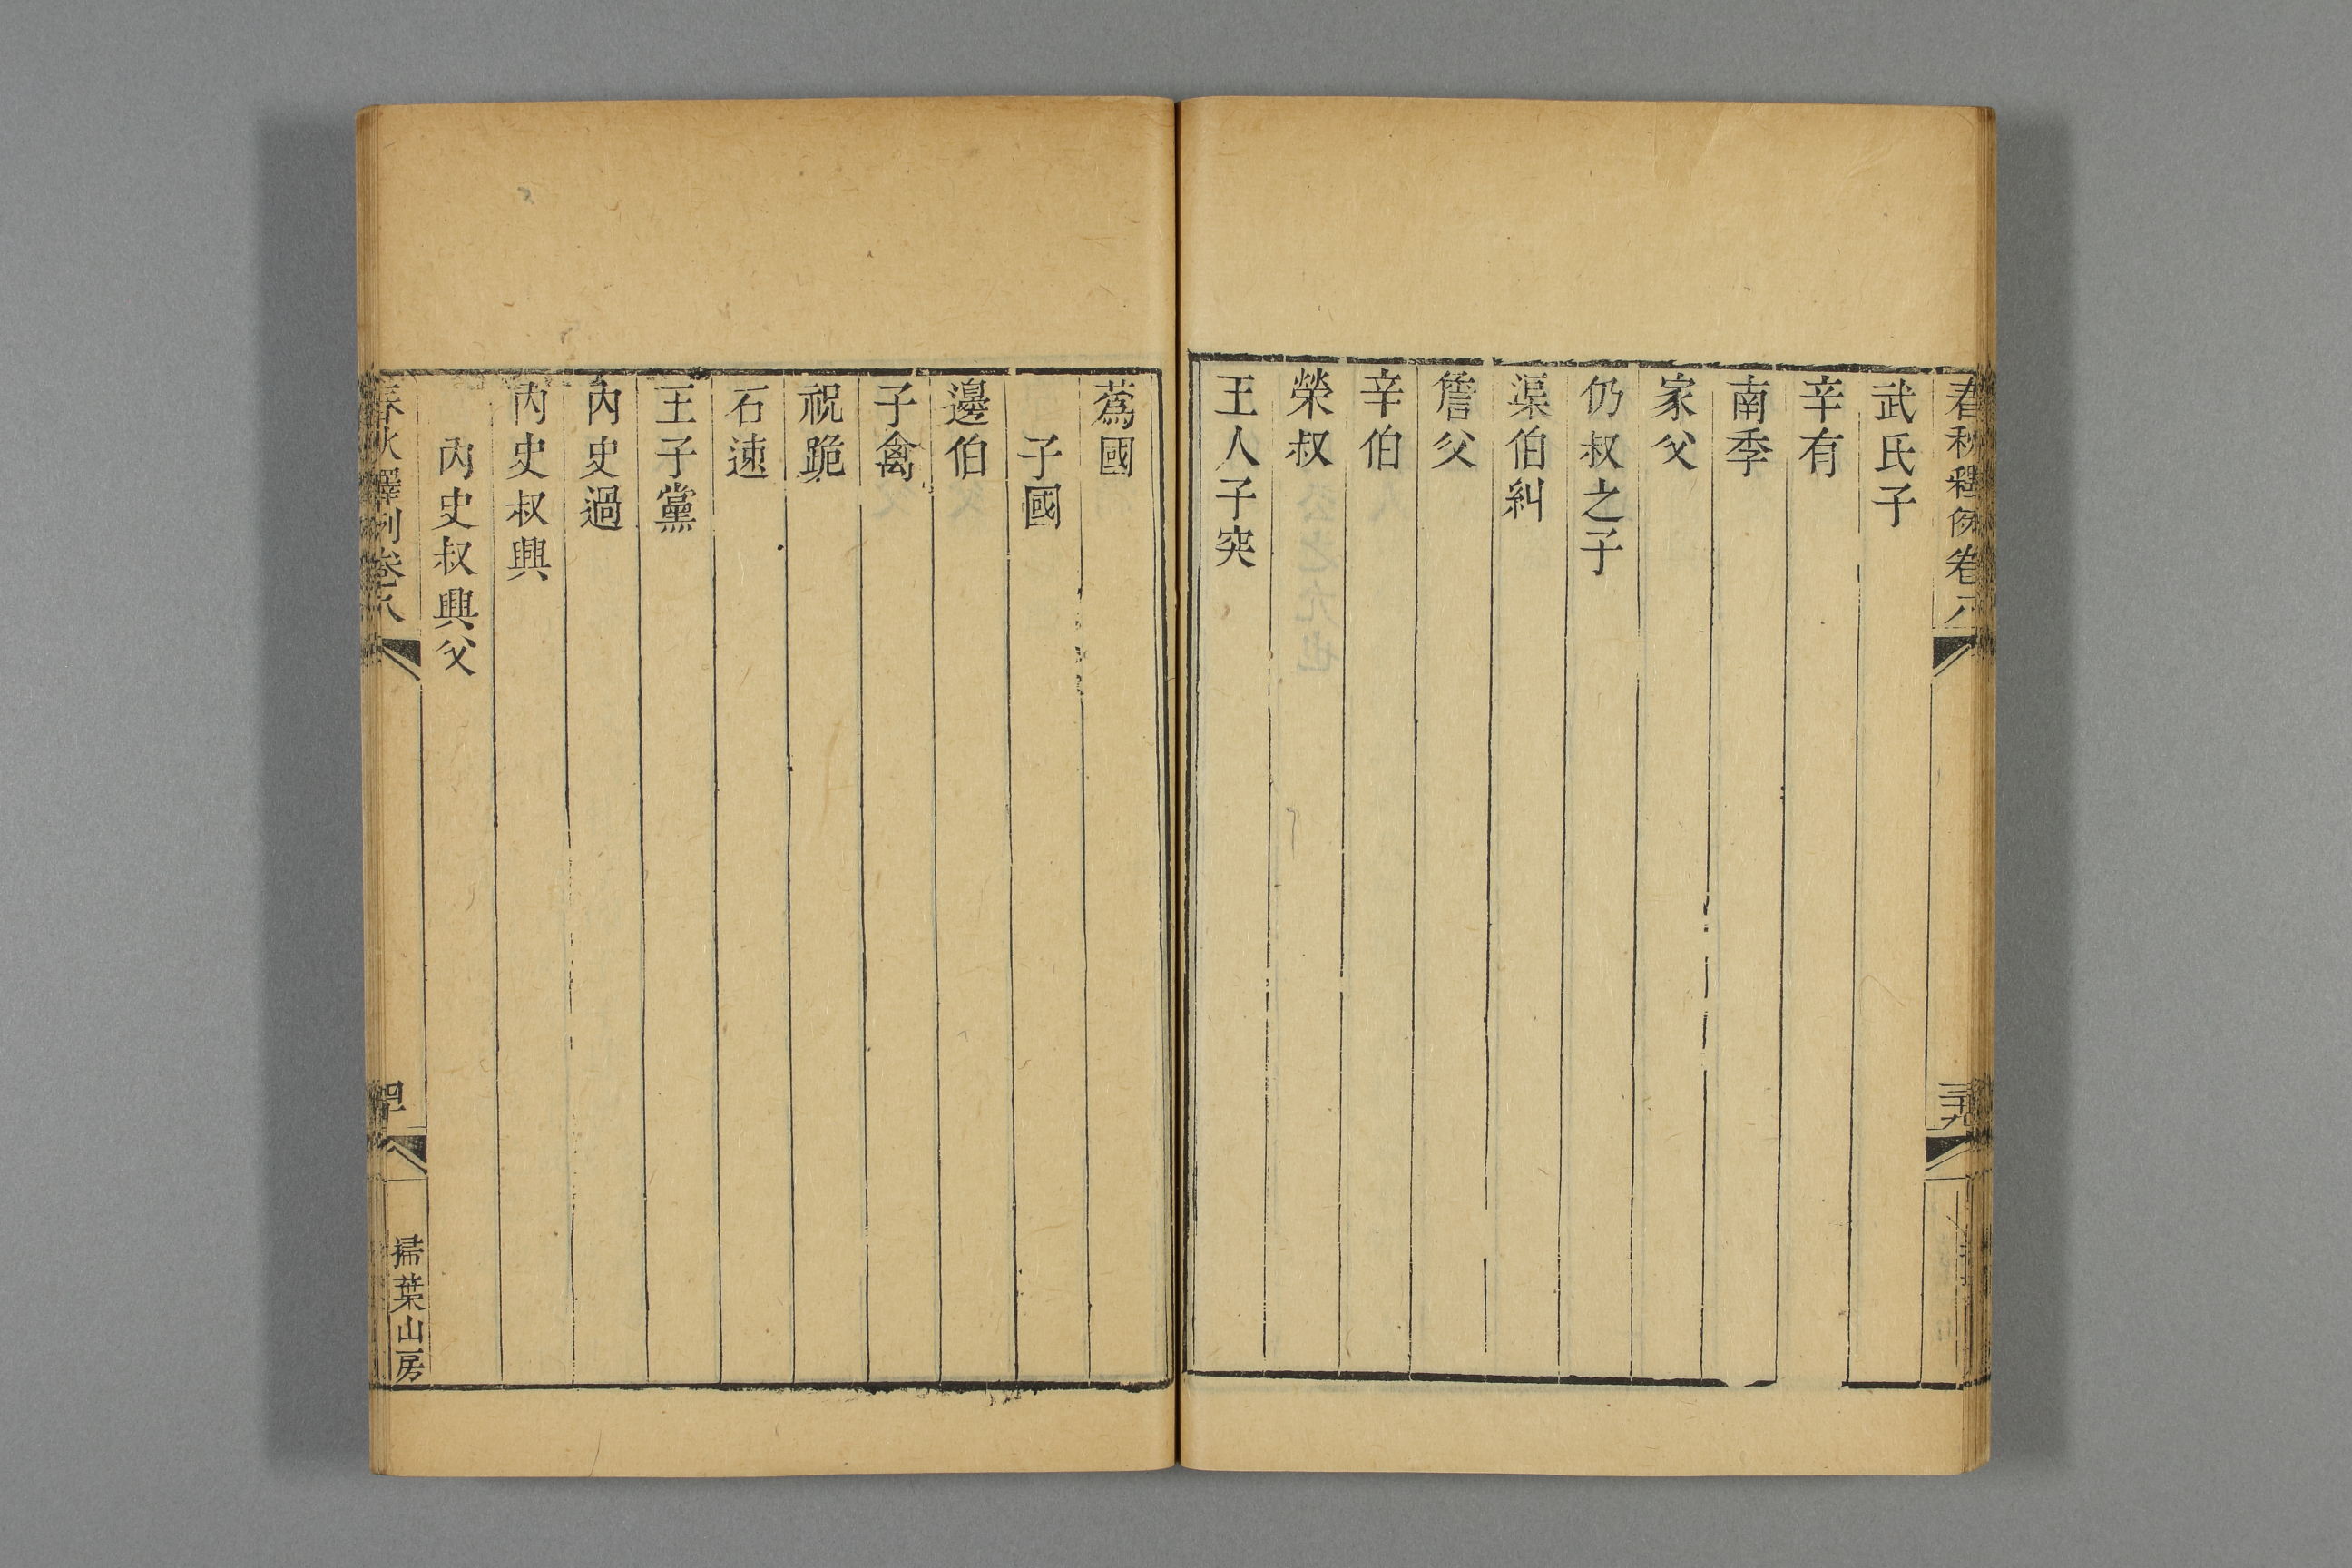 春秋釋例卷八
三十九
武氏子
辛有
南季
家父
仍叔之子
渠伯糾
詹父
辛伯
榮叔
王人子突
蔿國
子國
邊伯
子禽
祝跪
石速
王子黨
內史過
內史叔興
內史叔興父
春秋釋例卷八
四十
掃葉山房